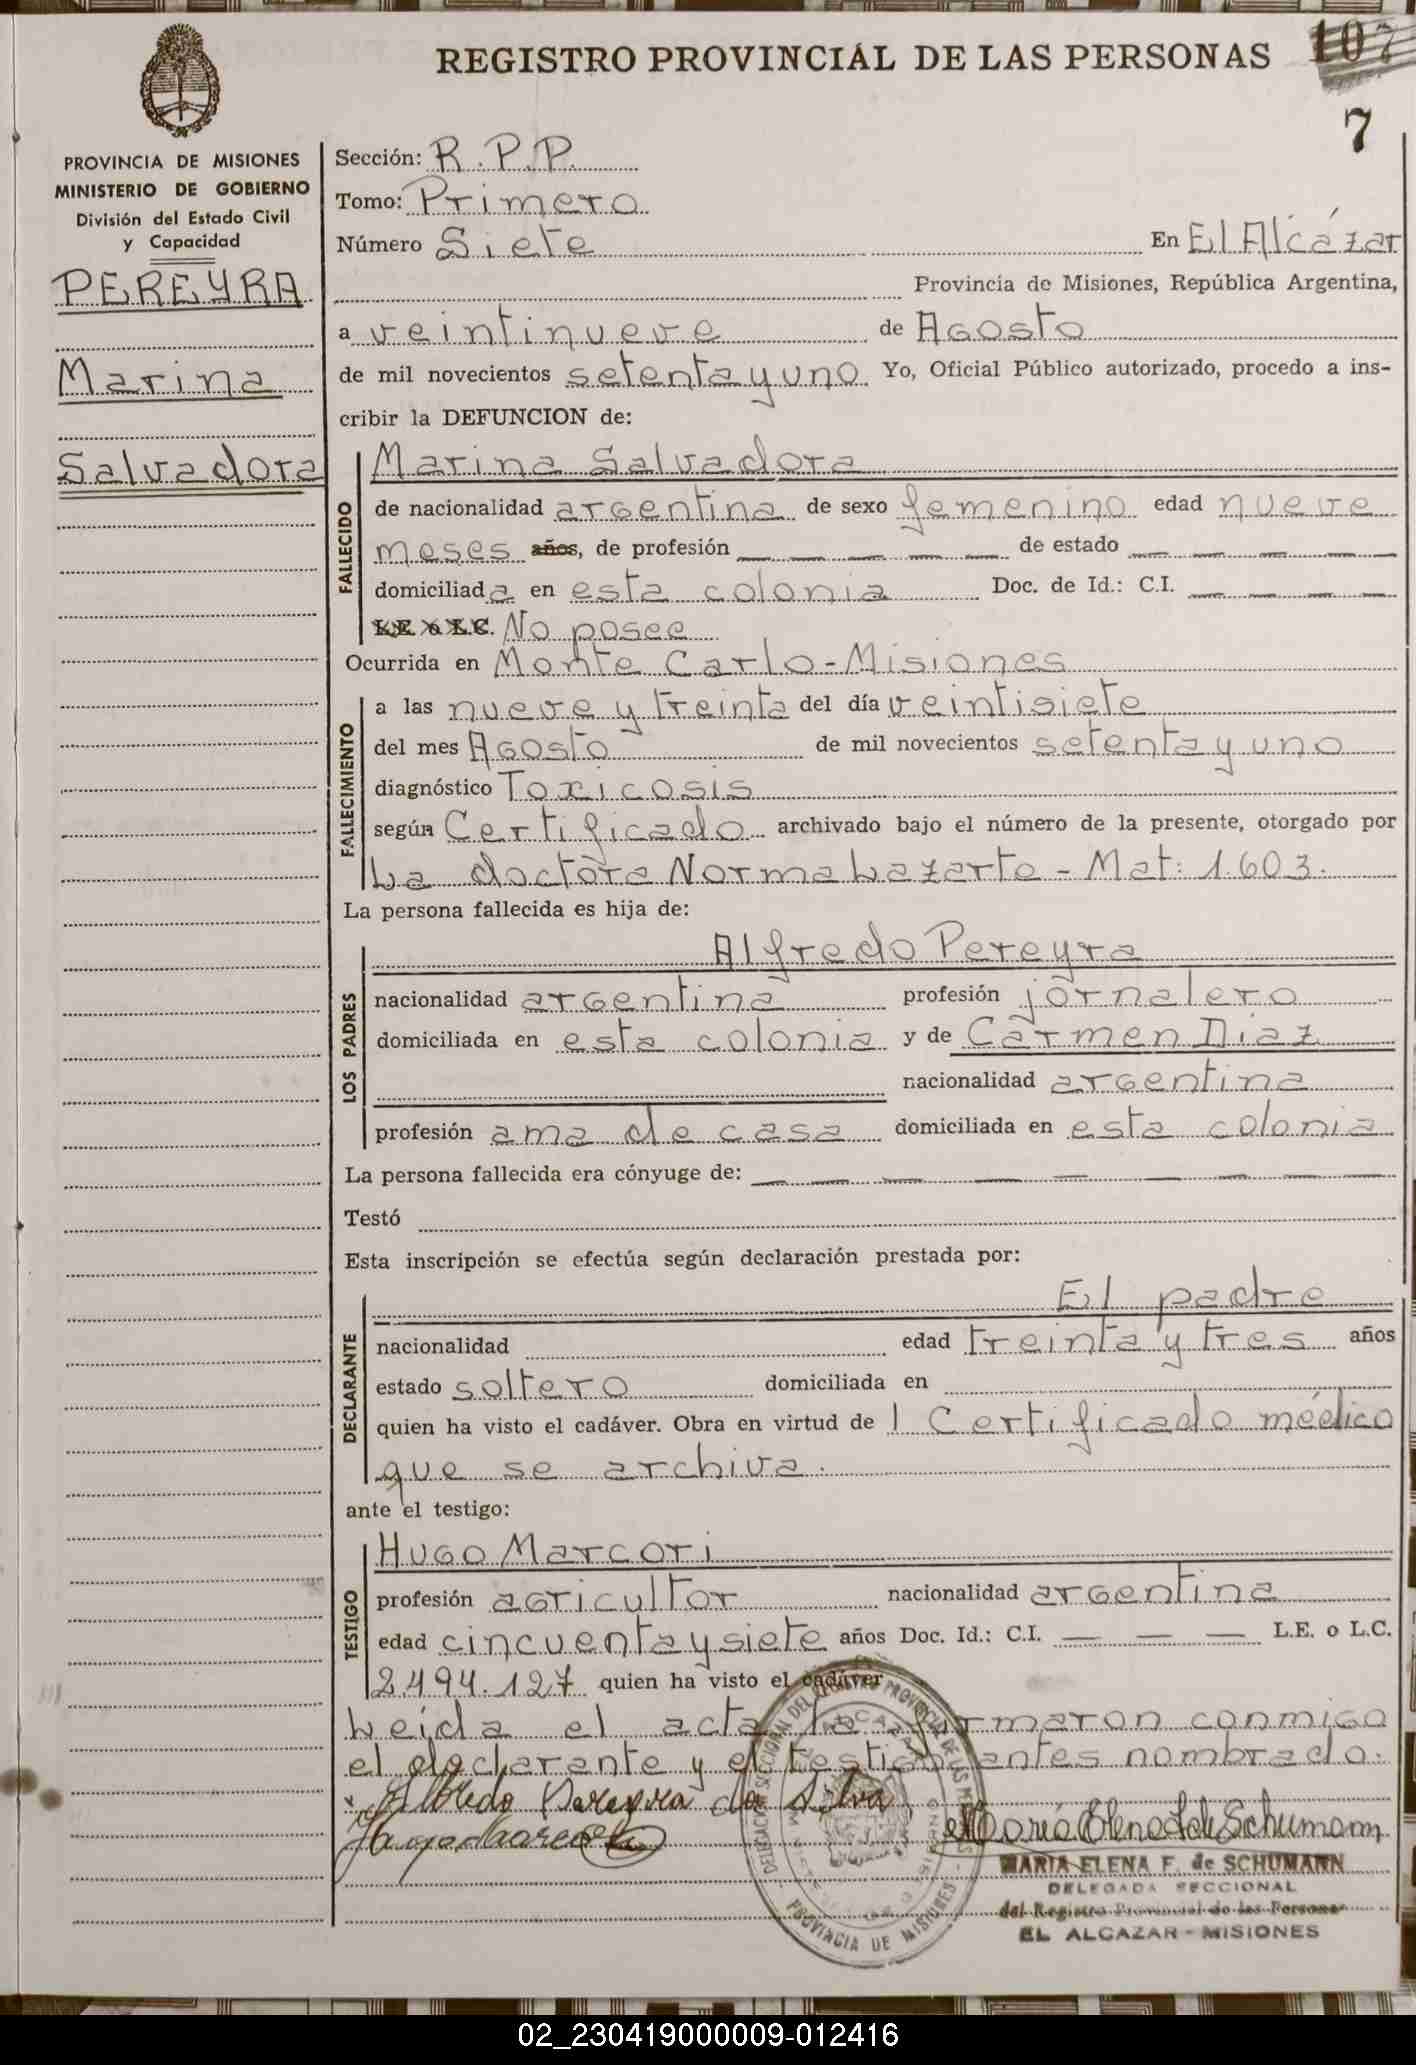 REGISTRO PROVINCIAL DE LAS PERSONAS
107
7
PROVINCIA DE MISIONES
MINISTERIO DE GOBIERNO
División del Estado Civil
y Capacidad
PEREYRA
Marina
Salvadora
Sección: R.P.P.
Tomo: Primero
Número Siete En El Alcázar
Provincia de Misiones, República Argentina,
a veintinueve de Agosto
de mil novecientos setenta y uno Yo, Oficial Público autorizado, procedo a ins-
cribir la DEFUNCION de:
FALLECIDO
Marina Salvadora
de nacionalidad argentina de sexo femenino edad nueve
meses años, de profesión — — — — — de estado — — — — —
domiciliada en esta colonia Doc. de Id.: C.I. — — — —
L.E. o L.C. No posee
Ocurrida en Monte Carlo - Misiones
FALLECIMIENTO
a las nueve y treinta del día veintisiete
del mes Agosto de mil novecientos setenta y uno
diagnóstico Toxicosis
según Certificado archivado bajo el número de la presente, otorgado por
La doctora Norma Lazarte - Mat: 1.603.
La persona fallecida es hija de:
LOS PADRES
Alfredo Pereyra
nacionalidad argentina profesión jornalero
domiciliada en esta colonia y de Carmen Diaz
nacionalidad argentina
profesión ama de casa domiciliada en esta colonia
La persona fallecida era cónyuge de: — — — — — — —
Testó
Esta inscripción se efectúa según declaración prestada por:
DECLARANTE
El padre
nacionalidad edad treinta y tres años
estado soltero domiciliada en
quien ha visto el cadáver. Obra en virtud de 1 Certificado médico
que se archiva.
ante el testigo:
TESTIGO
Hugo Marcori
profesión agricultor nacionalidad argentina
edad cincuenta y siete años Doc. Id.: C.I. — — — L.E. o L.C.
2.494.127 quien ha visto el cadáver
Leida el acta la firmaron conmigo
el declarante y el testigo antes nombrado.
Alfredo Pereyra da Silva
María Elena F de Schumann
MARIA ELENA F. de SCHUMANN
DELEGADA SECCIONAL
del Registro Provincial de las Personas
EL ALCAZAR - MISIONES
DELEGACION SECCIONAL DEL REGISTRO PROVINCIAL DE LAS PERSONAS
PROVINCIA DE MISIONES
02_230419000009-012416